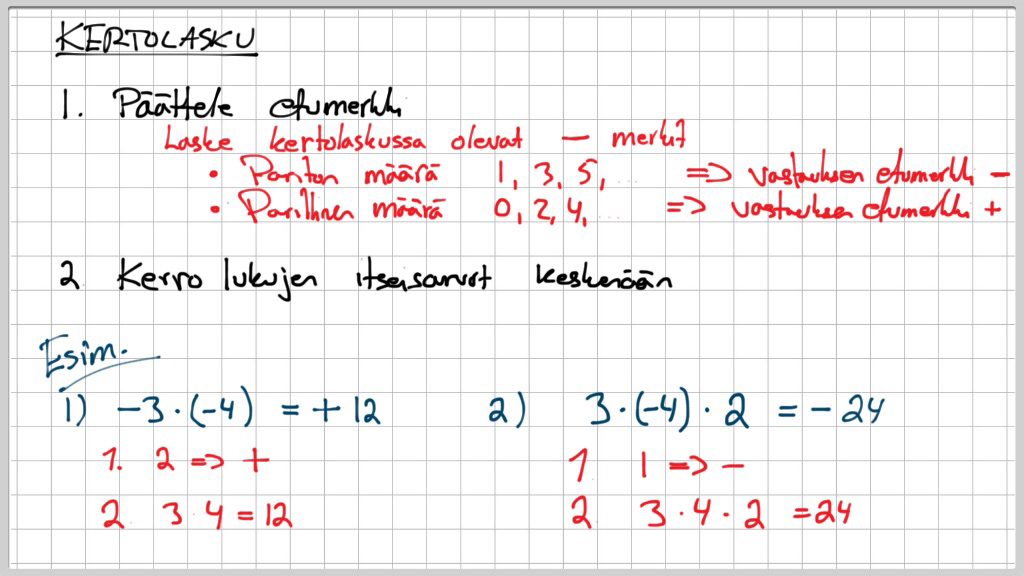 KERTOLASKU
1. Päättele etumerkki
Laske kertolaskussa olevat – merkit
• Pariton määrä 1, 3, 5, ... => vastauksen etumerkki –
• Parillinen määrä 0, 2, 4, ... => vastauksen etumerkki +
2 Kerro lukujen itseisarvot keskenään
Esim.
1) –3·(–4) = +12 2) 3·(–4)·2 = –24
1. 2 => + 1 1 => –
2 3 4 = 12 2 3·4·2 = 24